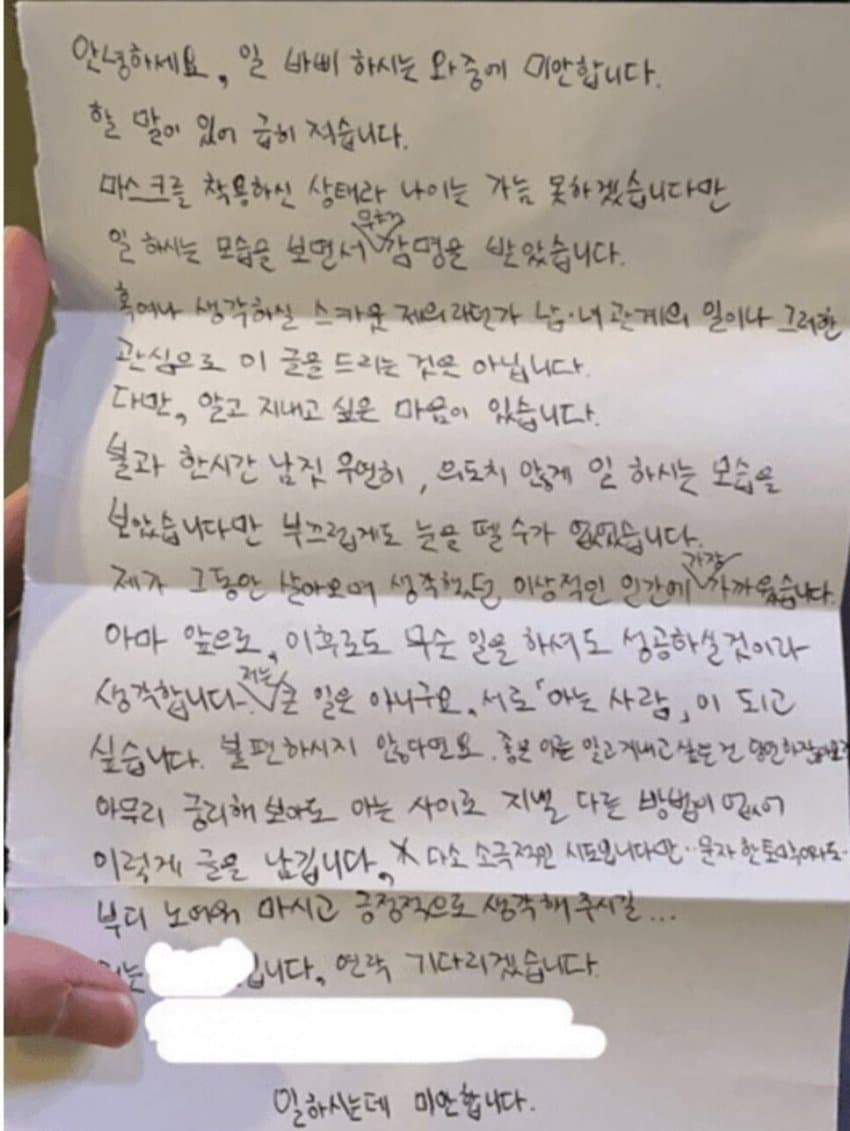 안녕하세요, 일 바삐 하시는 와중에 미안합니다.
할 말이 있어 급히 적습니다.
마스크를 착용하신 상태라 나이는 가늠 못하겠습니다만
일 하시는 모습을 보면서 무척 감명을 받았습니다.
혹여나 생각하실 스카웃 제의라던가 남·녀 관계의 일이나 그러한
관심으로 이 글을 드리는 것은 아닙니다.
다만, 알고 지내고 싶은 마음이 있습니다.
불과 한시간 남짓 우연히, 의도치 않게 일 하시는 모습을
보았습니다만 부끄럽게도 눈을 뗄 수가 없었습니다.
제가 그동안 살아오며 생각했던 이상적인 인간에 가장 가까웠습니다.
아마 앞으로, 이후로도 무슨 일을 하셔도 성공하실것이라
생각합니다. 저는 큰 일은 아니구요, 서로「아는 사람」이 되고
싶습니다. 불편하시지 않다면요. 좋은 이를 알고지내고 싶은건
아무리 궁리해 보아도 아는 사이로 지낼 다른 방법이 없어
이렇게 글을 남깁니다, 다소 소극적인 시도입니다만.. 문자 한토막이라도..
부디 노여워 마시고 긍정적으로 생각해 주시길...
입니다, 연락 기다리겠습니다.
일하시는데 미안합니다.